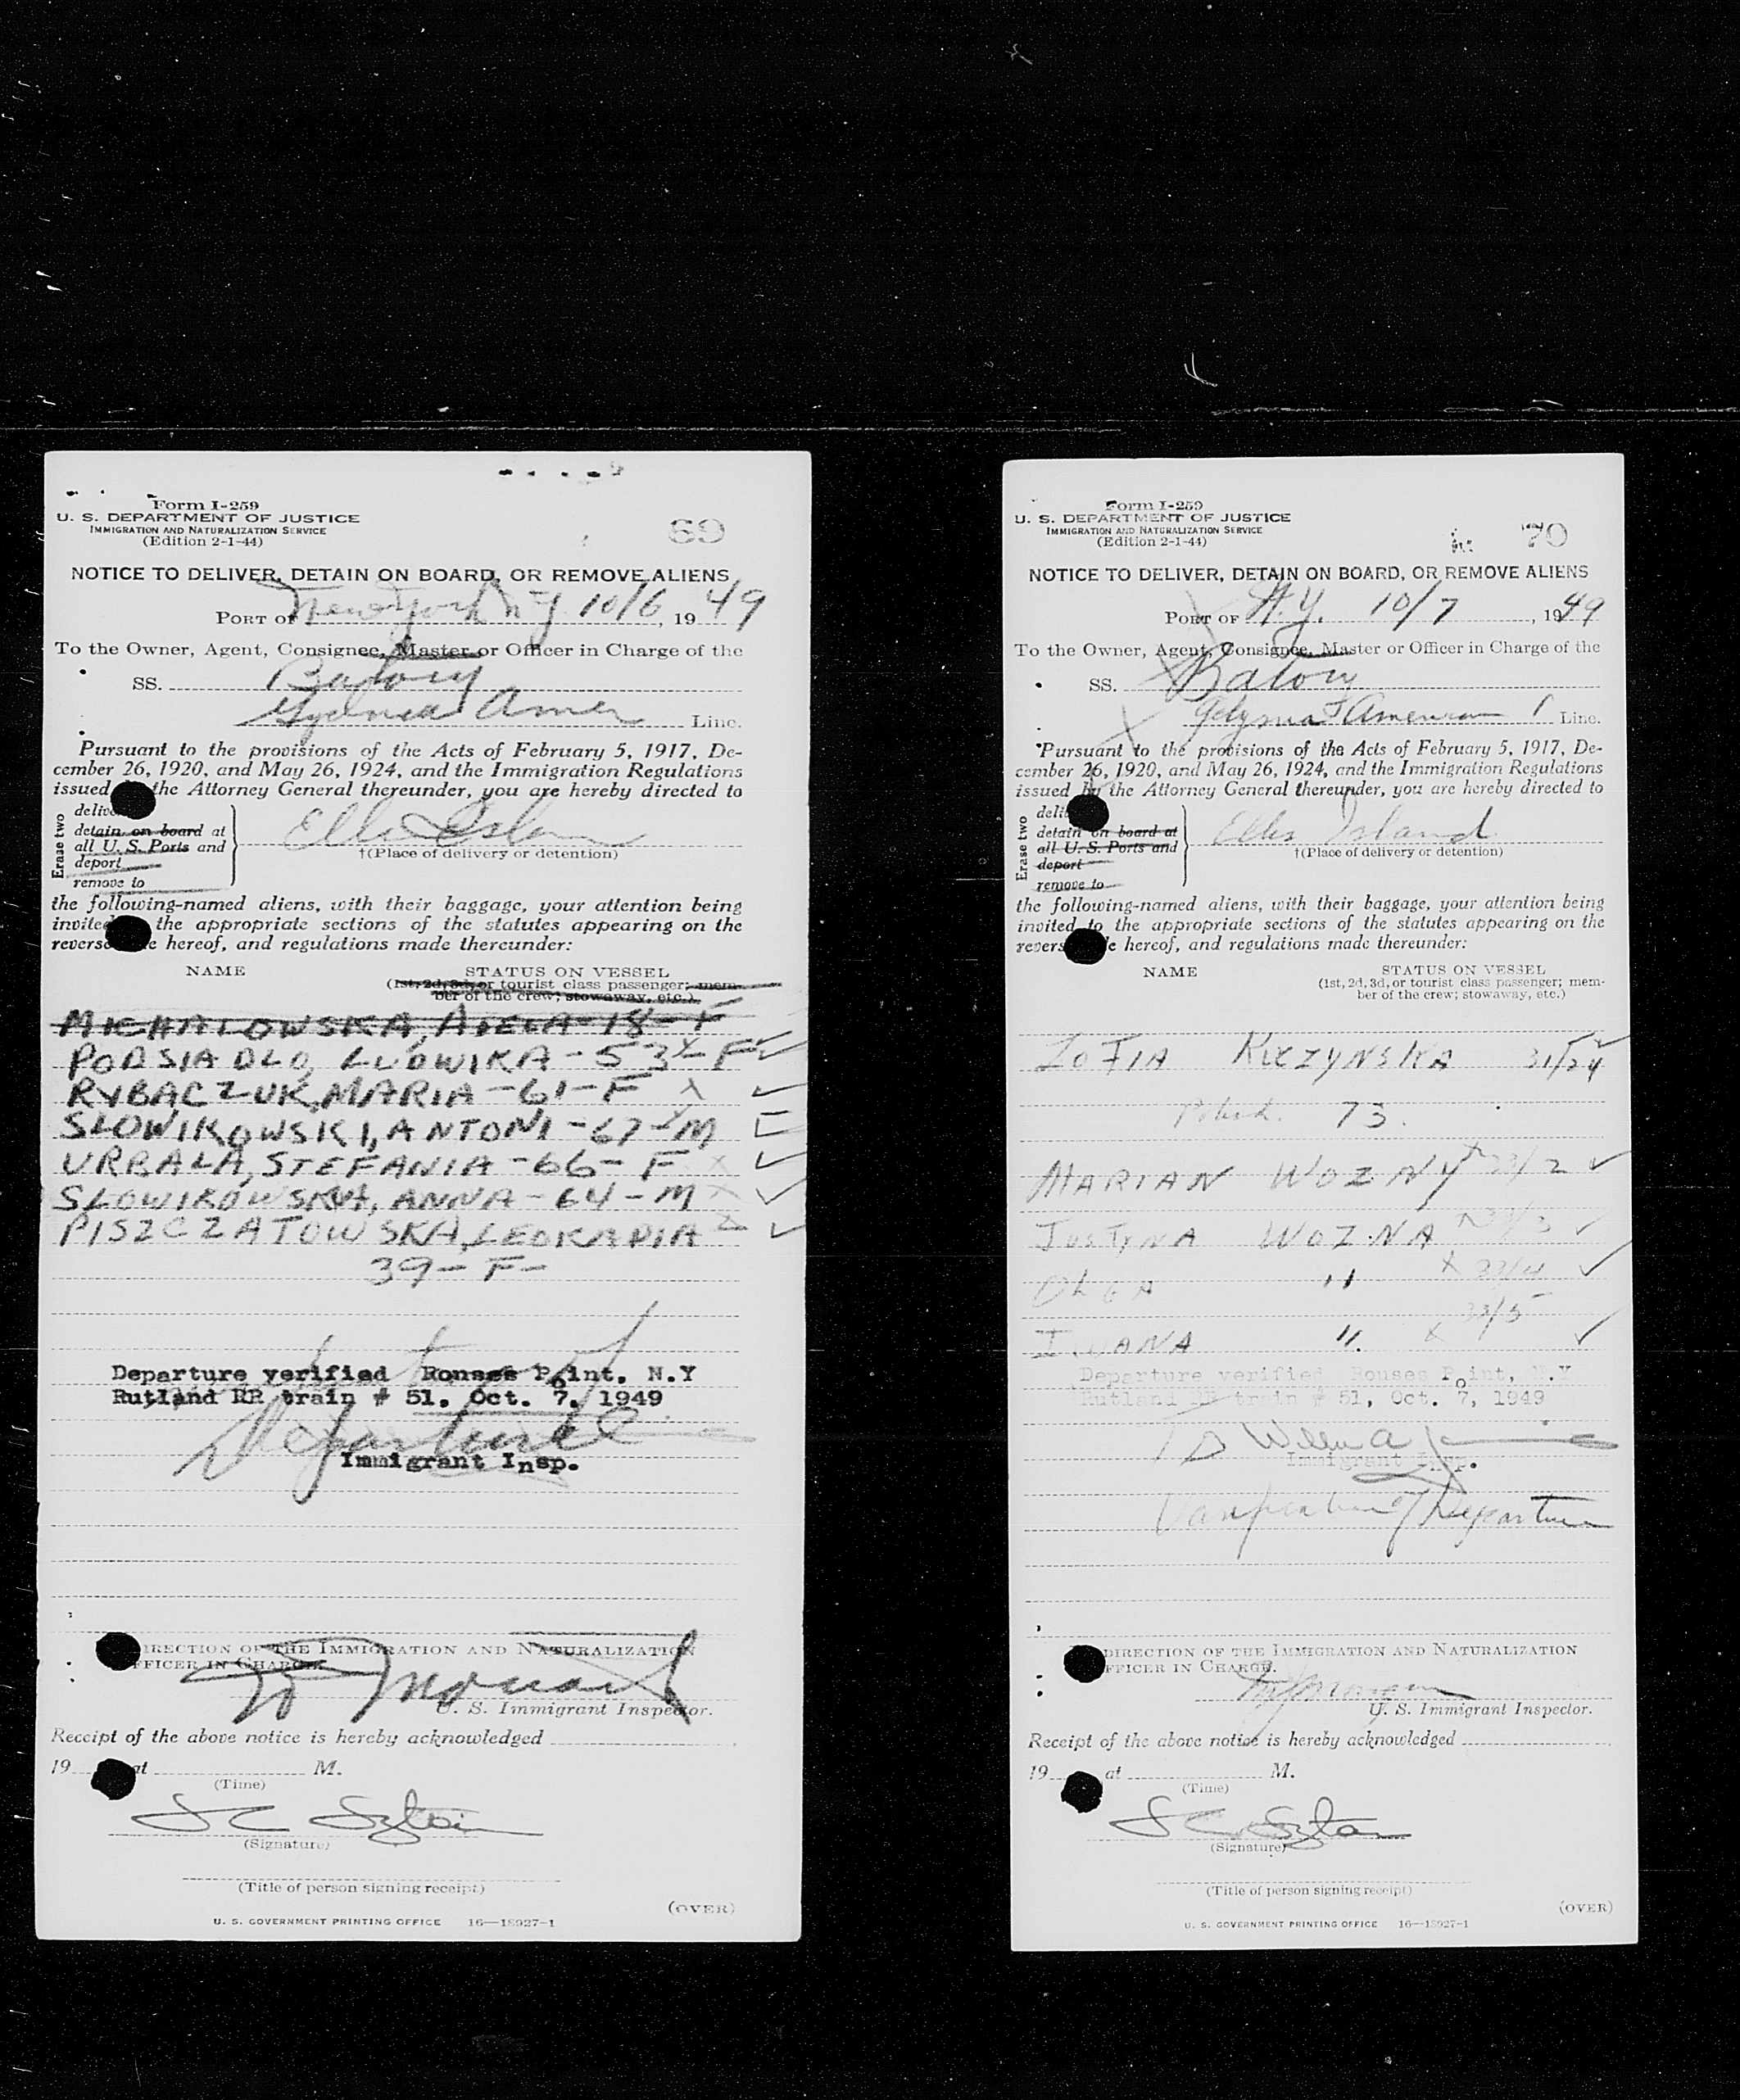 Form I-259
U. S. DEPARTMENT OF JUSTICE
IMMIGRATION AND NATURALIZATION SERVICE
(Edition 2-1-44)
69
NOTICE TO DELIVER, DETAIN ON BOARD, OR REMOVE ALIENS
PORT OF New York N Y 10/6, 1949
To the Owner, Agent, Consignee, Master or Officer in Charge of the
SS. Batory
Gydnia Amer Line.
Pursuant to the provisions of the Acts of February 5, 1917, De-
cember 26, 1920, and May 26, 1924, and the Immigration Regulations
issued the Attorney General thereunder, you are hereby directed to
Erase two
deliver
detain on board at
all U. S. Ports and
deport
remove to
Ellis Island
†(Place of delivery or detention)
the following-named aliens, with their baggage, your attention being
invited the appropriate sections of the statutes appearing on the
reverse hereof, and regulations made thereunder:
NAME STATUS ON VESSEL
(1st, 2d, 3d, or tourist class passenger; mem-
ber of the crew; stowaway, etc.)
MICHALOWSKA, ADELA - 18 - F
PODSIADLO, LUDWIKA - 53 x F ✓
RYBACZUK, MARIA - 61 - F x ✓
SLOWIKOWSKI, ANTONI - 67 x M
URBALA, STEFANIA - 66 - F x ✓
SLOWIKOWSKA, ANNA - 64 - M x ✓
PISZCZATOWSKA, LEOKADIA x ✓
39 - F -
Departure verified Rouses Point. N.Y
Rutland RR train # 51. Oct. 7, 1949
Departure
Immigrant Insp.
DIRECTION OF THE IMMIGRATION AND NATURALIZATION
OFFICER IN CHARGE.
U. S. Immigrant Inspector.
Receipt of the above notice is hereby acknowledged
19 at M.
(Time)
(Signature)
(Title of person signing receipt)
(OVER)
U. S. GOVERNMENT PRINTING OFFICE 16—18927-1
Form I-259
U. S. DEPARTMENT OF JUSTICE
IMMIGRATION AND NATURALIZATION SERVICE
(Edition 2-1-44)
70
NOTICE TO DELIVER, DETAIN ON BOARD, OR REMOVE ALIENS
PORT OF N.Y. 10/7, 1949
To the Owner, Agent, Consignee, Master or Officer in Charge of the
SS. Batory
Gdynia American Line.
Pursuant to the provisions of the Acts of February 5, 1917, De-
cember 26, 1920, and May 26, 1924, and the Immigration Regulations
issued by the Attorney General thereunder, you are hereby directed to
Erase two
deli
detain on board at
all U. S. Ports and
deport
remove to
Ellis Island
†(Place of delivery or detention)
the following-named aliens, with their baggage, your attention being
invited to the appropriate sections of the statutes appearing on the
revers e hereof, and regulations made thereunder:
NAME STATUS ON VESSEL
(1st, 2d, 3d, or tourist class passenger; mem-
ber of the crew; stowaway, etc.)
ZOFIA 31/24 ✓
73.
MARIAN WOZNY x 33/2 ✓
JUSTYNA WOZNA x 33/3 ✓
OLGA " x 33/4 ✓
33/5
" x ✓
Departure verified Rouses Point, N.Y
Rutland RR train # 51, Oct. 7, 1949
Immigrant Insp.
Departure
DIRECTION OF THE IMMIGRATION AND NATURALIZATION
OFFICER IN CHARGE.
U. S. Immigrant Inspector.
Receipt of the above notice is hereby acknowledged
19 at M.
(Time)
(Signature)
(Title of person signing receipt)
(OVER)
U. S. GOVERNMENT PRINTING OFFICE 16—18927-1